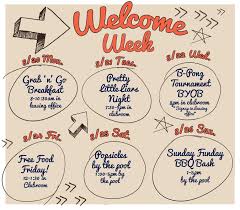 Welcome
Week
8/20 Mon.
Grab 'n' Go
Breakfast
8-10:30am in
leasing office
8/21 Tues.
Pretty
Little Liars
Night
7:30pm in
clubroom
8/22 Wed.
B-Pong
Tournament
BYOB
8pm in clubroom
*Signup in leasing
office*
8/24 Fri.
Free Food
Friday!
12-1:30 in
Clubroom
8/25 Sat.
Popsicles
by the pool
by the pool
8/26 Sun.
Sunday Funday
BBQ Bash
1-5pm
by the pool